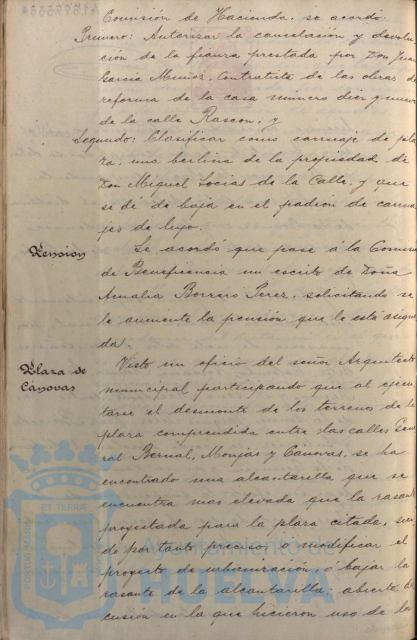 Comisión de Hacienda, se acordó:
Primero: Autorizar la cancelación y devolu-
ción de la fianza prestada por Don Juan
García Muñoz, Contratista de las obras de
reforma de la casa número diez y nueve
de la calle Rascon, y
Segundo: Clasificar como carruaje de pla-
za, una berlina de la propiedad de
Don Miguel Socias de la Calle, y que
se dé de baja en el padrón de carrua-
jes de lujo.
Pension
Se acordó que pase á la Comisión
de Beneficencia un escrito de Doña
Amalia Borrero Perez, solicitando se
le aumente la pensión que le está asigna-
da.
Plaza de
Cánovas
Visto un oficio del señor Arquitecto
municipal participando que al ejecu-
tarse el desmonte de los terrenos de la
plaza comprendida entre las calles Gene-
ral Bernal, Monjas y Cánovas, se ha
encontrado una alcantarilla que se
encuentra mas elevada que la rasante
proyectada para la plaza citada,
de por tanto preciso, ó modificar el
proyecto de urbanización, ó bajar la
rasante de la alcantarilla; abierta
cusión en la que hicieron uso de la
Ayuntamiento de
HUELVA